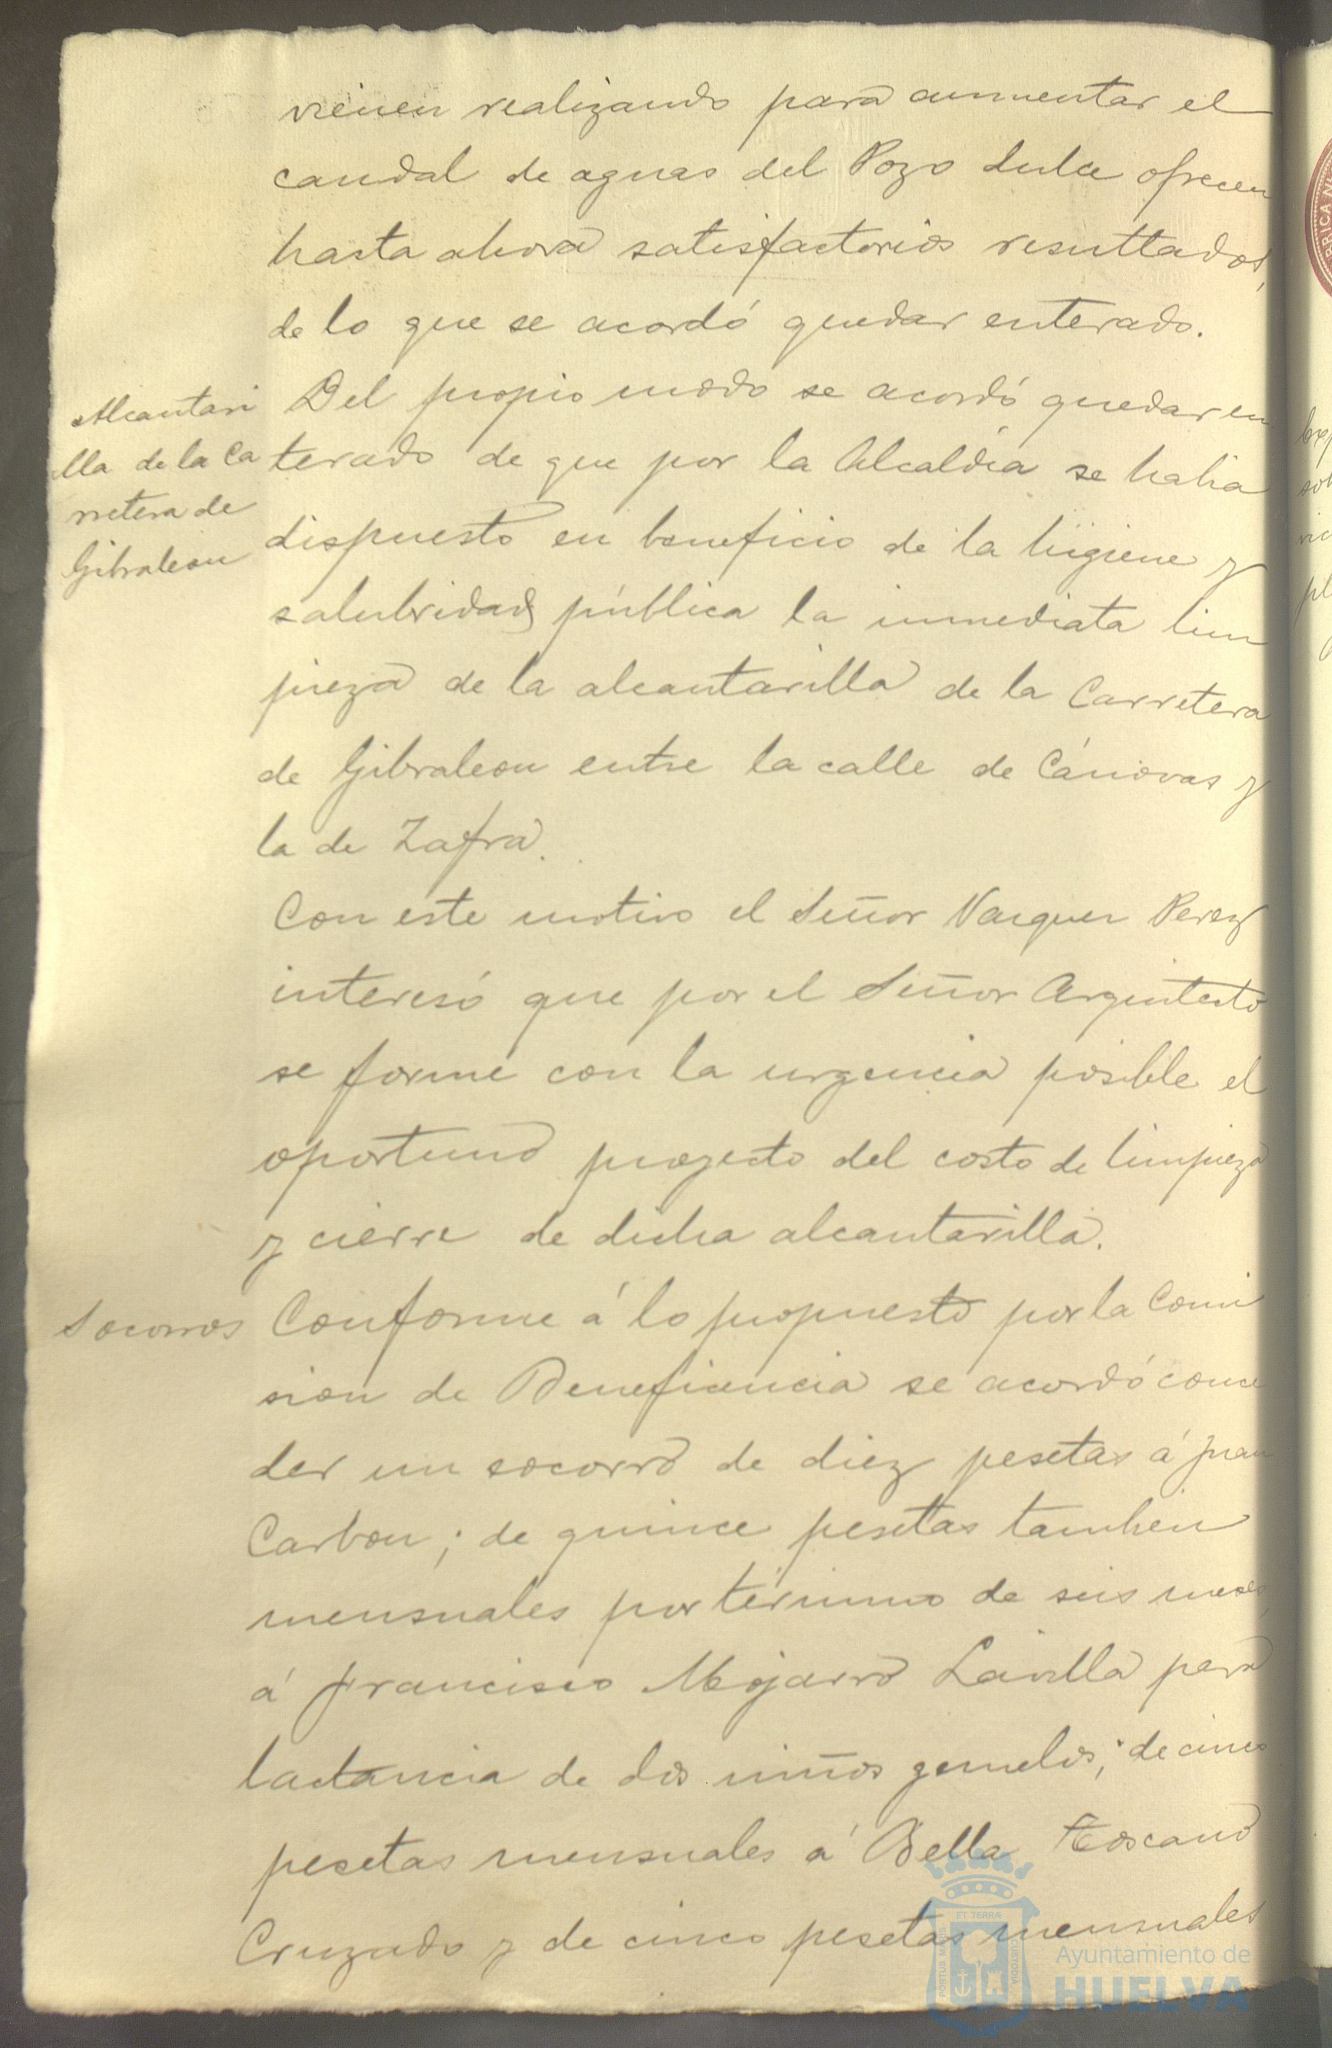 vienen realizando para aumentar el
caudal de aguas del Pozo dulce ofrecen
hasta ahora satisfactorios resultados,
de lo que se acordó quedar enterado.
Alcantari
lla de la Ca
rretera de
Gibraleon
Del propio modo se acordó quedar en
terado de que por la Alcaldía se habia
dispuesto en beneficio de la higiene y
salubridad pública la inmediata lim
pieza de la alcantarilla de la Carretera
de Gibraleon entre la calle de Cánovas y
la de Zafra.
Con este motivo el Señor Vazquez Perez
interesó que por el Señor Arquitecto
se forme con la urgencia posible el
oportuno proyecto del costo de limpieza
y cierre de dicha alcantarilla.
Socorros
Conforme á lo propuesto por la Comi
sion de Beneficencia se acordó conce
der un socorro de diez pesetas á Juan
Carbon; de quince pesetas tambien
mensuales por término de seis meses,
á Francisco Mojarro Lavilla para
lactancia de dos niños gemelos; de cinco
pesetas mensuales á Bella Toscano
Cruzado y de cinco pesetas mensuales
PORTUS MARIS ET TERRAE CUSTODIA
Ayuntamiento de
HUELVA